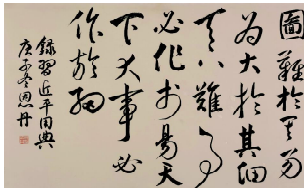 圖難於其易
為大於其細
天下難事
必作於易天
下大事必
作於細
錄習近平用典
庚子冬恩丹